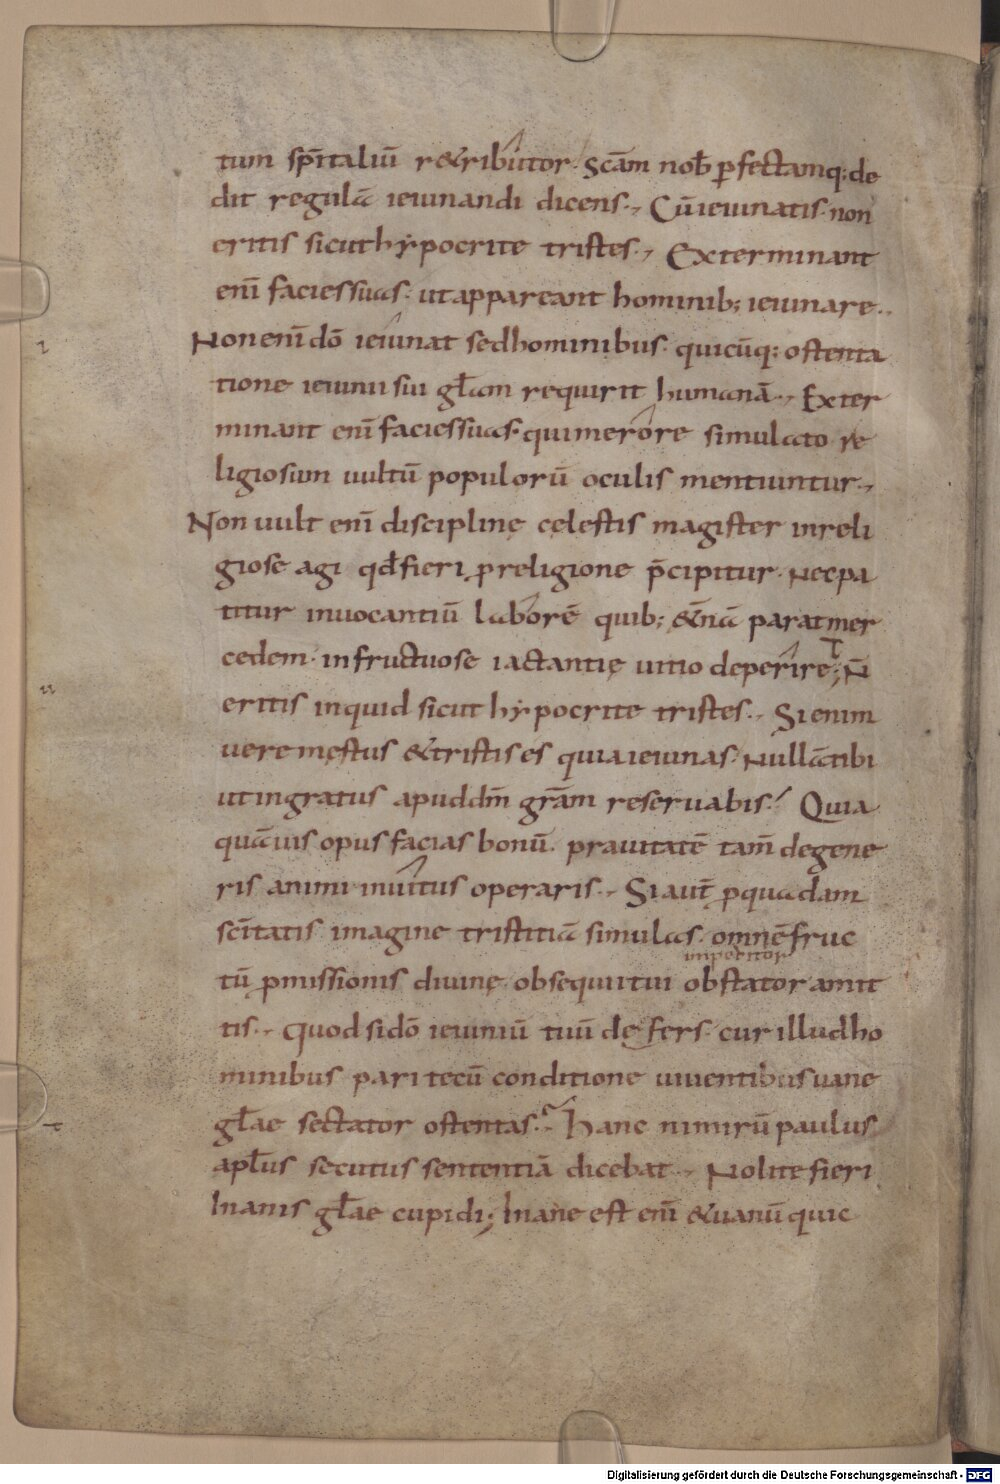 tum sp̄italiū r&ributor. Scām nob̄ ꝑfectamq; de
dit regulā ieiunandi dicens., Cū ieiunatis. non
eritis sicut hẏpocrite tristes., Exterminant
enī facies suas. ut appareant hominib; ieiunare..
Non enī dō ieiunat sed hominibus. quicūq; ostenta
tione ieiunii sui gl̄am requirit humanā., Exter
minant enī facies suas. qui merore simulato re
ligiosum uultū populorū oculis mentiuntur.,
Non uult enī disciplinę celestis magister inreli
giose agi qd̄ fieri p religione p̄cipitur. Nec pa
titur inuocantiū laborē quib; &nā parat mer
cedem. infructuose iactantię uitio deperire; N̄
eritis inquid sicut hẏpocrite tristes., Si enim
uere mestus & tristis es quia ieiunas. Nullā tibi
ut ingratus apud dm̄ grām reseruabis. Quia
quāuis opus facias bonū. prauitatē tam̄ degene
ris animi inuitus operaris., Si aut̄ ꝑ quadam
scītatis imagine tristitiā simulas. omnē fruc
impeditor
tū ꝓmissionis diuinę obsequii tui obstator amit
tis., Quod si dō ieiuniū tuū defers. cur illud ho
minibus pari tecū conditione uiuentibus uane
gl̄ae sectator ostentas. Hanc nimirū paulus
apl̄us secutus sententiā dicebat., Nolite fieri
Inanis gl̄ae cupidi; Inane est enī & uanū quic
Digitalisierung gefördert durch die Deutsche Forschungsgemeinschaft - DFG